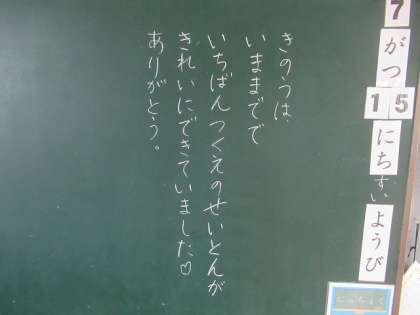 7
がつ
15
にち
すい
ようび
きのうは、
いままでで
いちばんつくえのせいとんが
きれいにできていました♡
ありがとう。